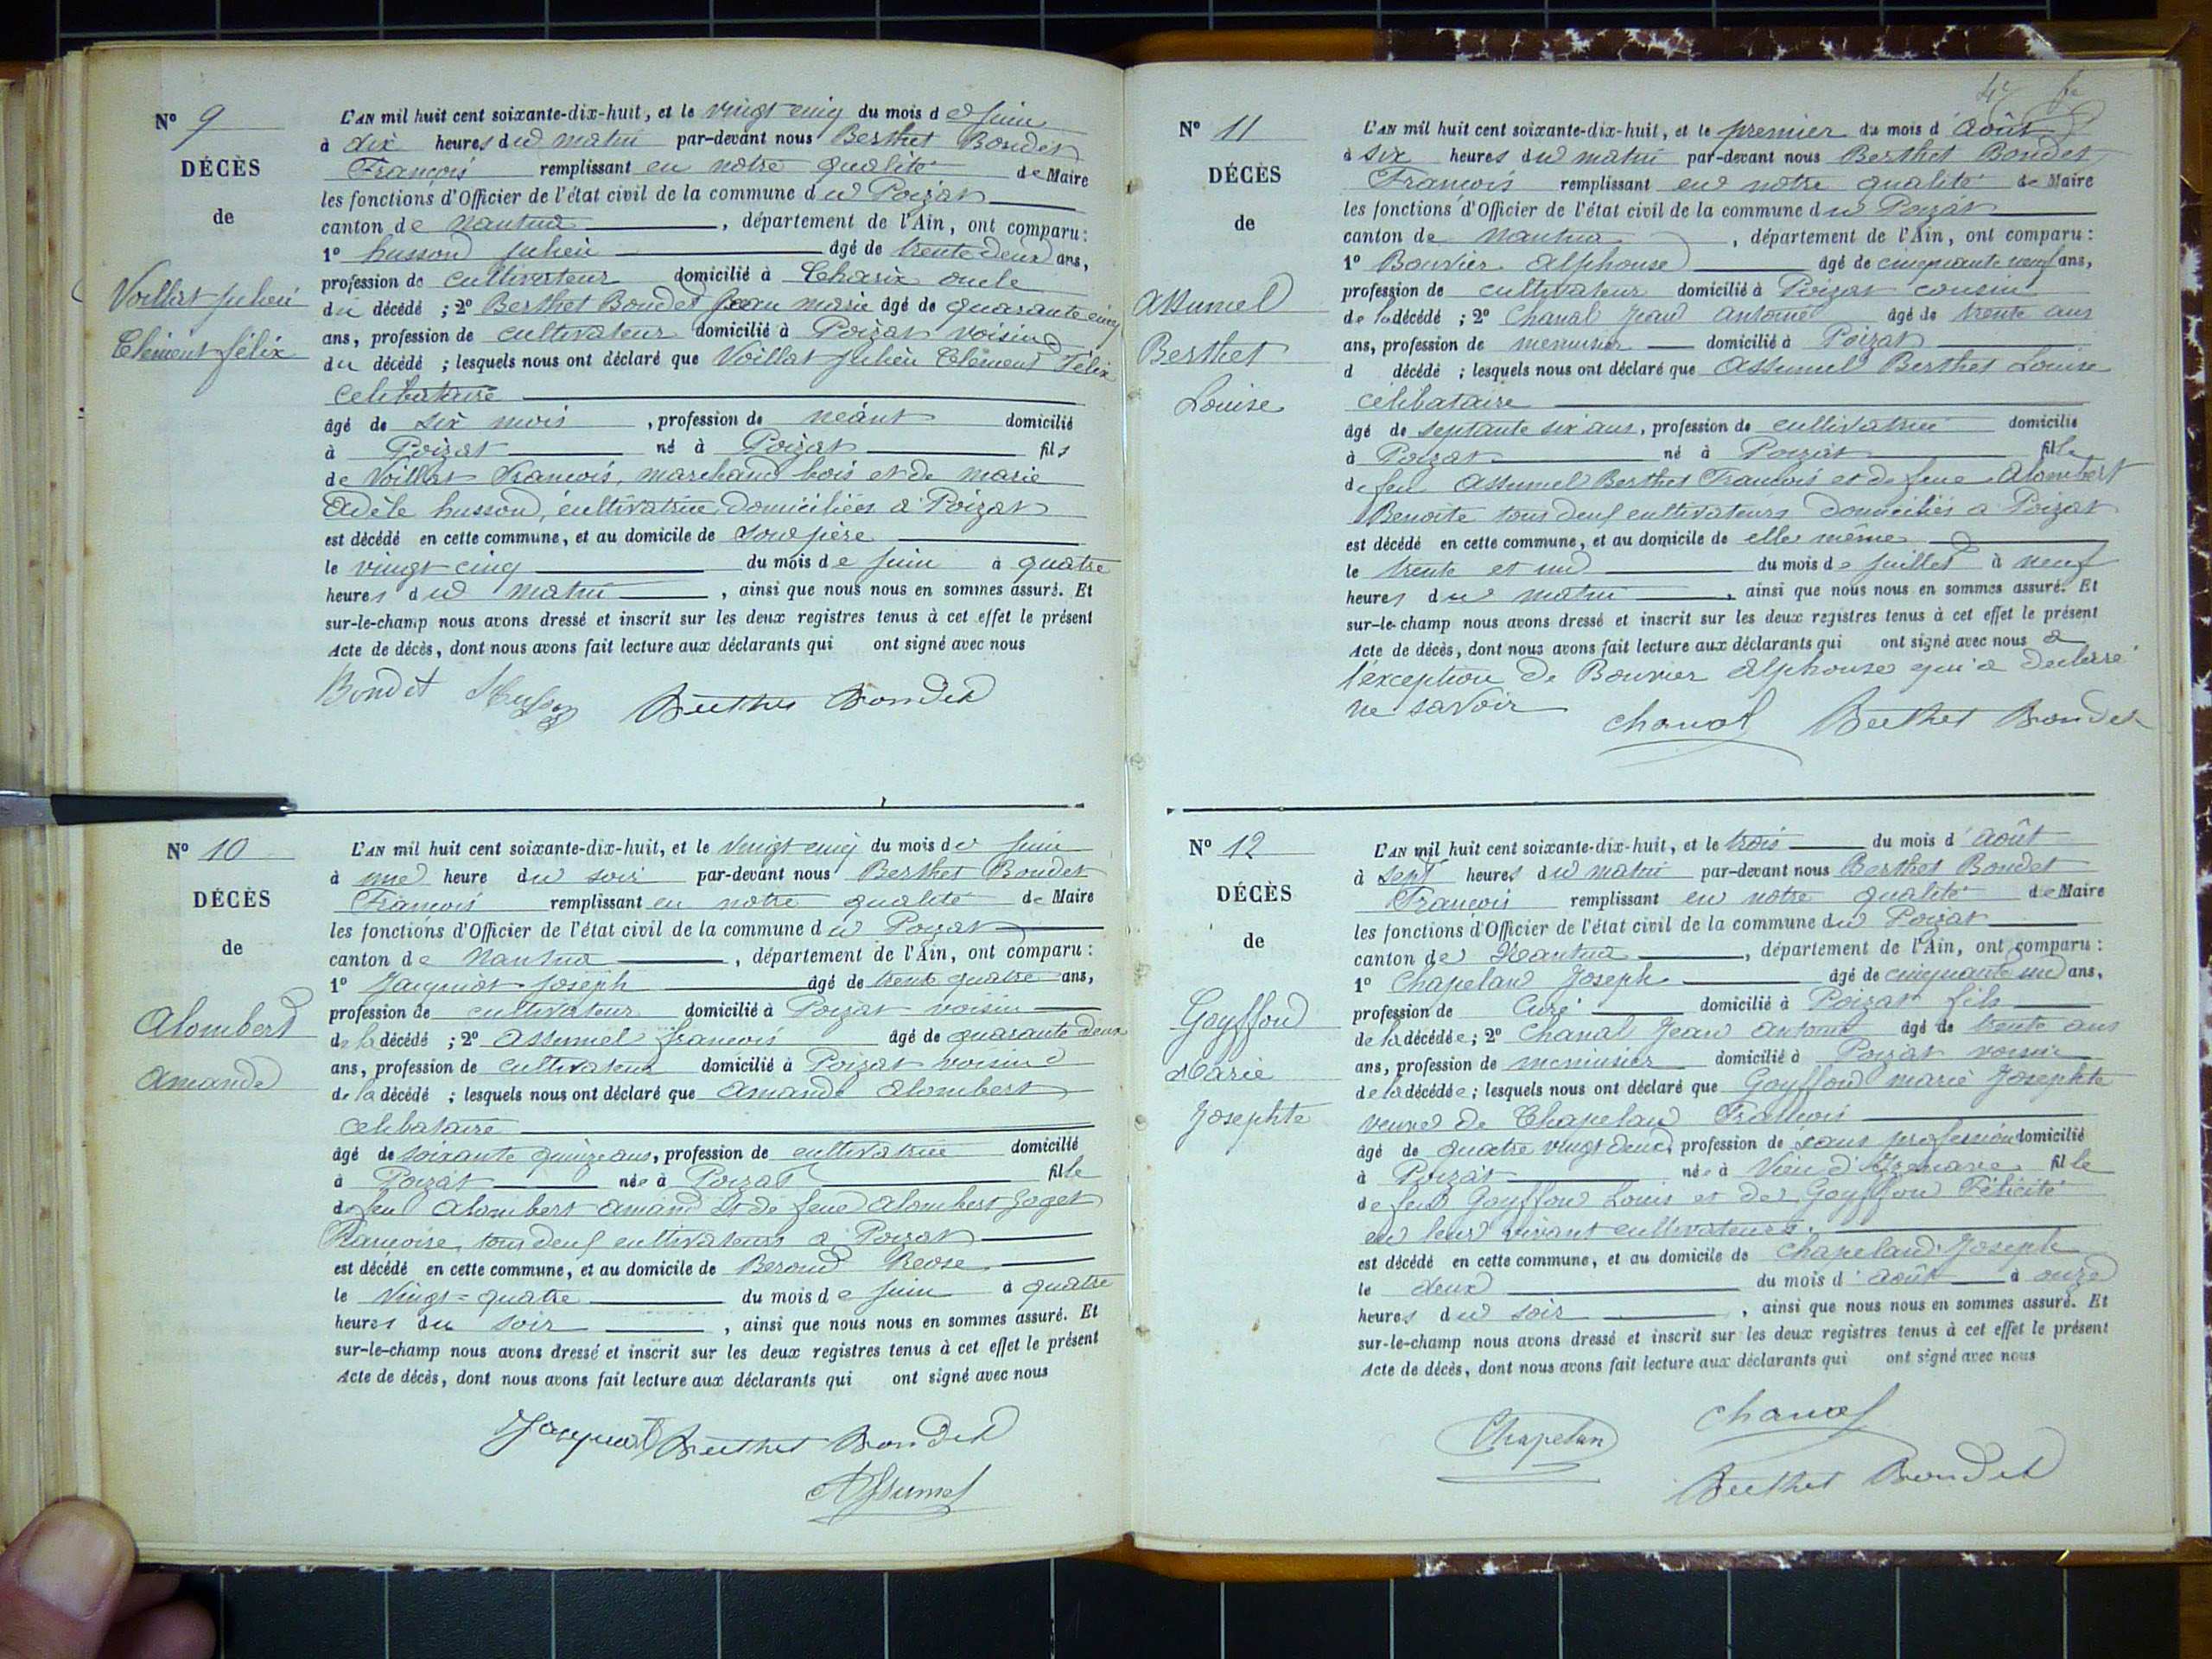 N° 9
DÉCÈS
de
Voillat Julien
Clément félix
L'AN mil huit cent soixante-dix-huit, et le vingt cinq du mois de Juin
à dix heures du matin par-devant nous Berthet Bondet
François remplissant en notre qualité de Maire
les fonctions d'Officier de l'état civil de la commune du Poizat
canton de Nantua , département de l'Ain, ont comparu :
1° husson julien âgé de trente deux ans,
profession de cultivateur domicilié à Charix oncle
du décédé ; 2° Berthet Bondet Jean marie âgé de quarante cinq
ans, profession de cultivateur domicilié à Poizat voisin
du décédé ; lesquels nous ont déclaré que Voillat Julien Clément Félix
célibataire
âgé de six mois , profession de néant domicilié
à Poizat né à Poizat fils
de Voillat François, marchand bois et de marie
Adèle husson, cultivatrice domiciliés à Poizat
est décédé en cette commune, et au domicile de son père
le vingt cinq du mois de juin à quatre
heures du matin , ainsi que nous nous en sommes assuré. Et
sur-le-champ nous avons dressé et inscrit sur les deux registres tenus à cet effet le présent
Acte de décès, dont nous avons fait lecture aux déclarants qui ont signé avec nous
Bondet Husson Berthet Bondet
N° 10
DÉCÈS
de
Alombert
Amande
L'AN mil huit cent soixante-dix-huit, et le vingt cinq du mois de Juin
à une heure du soir par-devant nous Berthet Bondet
François remplissant en notre qualité de Maire
les fonctions d'Officier de l'état civil de la commune du Poizat
canton de Nantua , département de l'Ain, ont comparu :
1° Jacquiot Joseph âgé de trente quatre ans,
profession de cultivateur domicilié à Poizat voisin
de la décédé ; 2° Assumel françois âgé de quarante deux
ans, profession de cultivateur domicilié à Poizat voisin
de la décédé ; lesquels nous ont déclaré que Amande Alombert
célibataire
âgé de soixante quinze ans, profession de cultivatrice domicilié
à Poizat née à Poizat fille
de feu Alombert Amand et de feue Alombert Goget
Françoise, tous deux cultivateurs à Poizat
est décédé en cette commune, et au domicile de Beroud
le Vingt=quatre du mois de Juin à quatre
heures du soir , ainsi que nous nous en sommes assuré. Et
sur-le-champ nous avons dressé et inscrit sur les deux registres tenus à cet effet le présent
Acte de décès, dont nous avons fait lecture aux déclarants qui ont signé avec nous
Jacquiot Berthet Bondet
Assumel
47
N° 11
DÉCÈS
de
Assumel
Berthet
Louise
L'AN mil huit cent soixante-dix-huit, et le premier du mois d'Août
à six heures du matin par-devant nous Berthet Bondet
François remplissant en notre qualité de Maire
les fonctions d'Officier de l'état civil de la commune du Poizat
canton de Nantua , département de l'Ain, ont comparu :
1° Bouvier Alphonse âgé de cinquante neuf ans,
profession de cultivateur domicilié à Poizat cousin
de la décédé ; 2° Chanal Jean Antoine âgé de trente ans
ans, profession de menuisier domicilié à Poizat
d décédé ; lesquels nous ont déclaré que Assumel Berthet Louise
célibataire
âgé de septante six ans, profession de cultivatrice domicilié
à Poizat né à Poizat fille
de feu Assumel Berthet François et de feue Alombert
Benoite tous deux cultivateurs domiciliés à Poizat
est décédé en cette commune, et au domicile de elle même
le trente et un du mois de juillet à neuf
heures du matin , ainsi que nous nous en sommes assuré. Et
sur-le-champ nous avons dressé et inscrit sur les deux registres tenus à cet effet le présent
Acte de décès, dont nous avons fait lecture aux déclarants qui ont signé avec nous à
l'exception de Bouvier Alphonse qui a déclaré
ne savoir Chanal Berthet Bondet
N° 12
DÉCÈS
de
Goyffon
Marie
Josephte
L'AN mil huit cent soixante-dix-huit, et le trois du mois d'août
à sept heures du matin par-devant nous Berthet Bondet
François remplissant en notre qualité de Maire
les fonctions d'Officier de l'état civil de la commune du Poizat
canton de Nantua , département de l'Ain, ont comparu :
1° Chapelan Joseph âgé de cinquante un ans,
profession de Curé domicilié à Poizat fils
de la décédée ; 2° Chanal Jean Antoine âgé de trente ans
ans, profession de menuisier domicilié à Poizat voisin
de la décédée ; lesquels nous ont déclaré que Goyffon marie Josephte
veuve de Chapelan François
âgé de quatre vingt deux, profession de sans profession domicilié
à Poizat née à Vieu d'Izenave fille
de feu Goyffon Louis et de Goyffon Félicité
en leur vivant cultivateurs.
est décédé en cette commune, et au domicile de Chapelan Joseph
le deux du mois d'août à onze
heures du soir , ainsi que nous nous en sommes assuré. Et
sur-le-champ nous avons dressé et inscrit sur les deux registres tenus à cet effet le présent
Acte de décès, dont nous avons fait lecture aux déclarants qui ont signé avec nous
Chapelan Chanal
Berthet Bondet